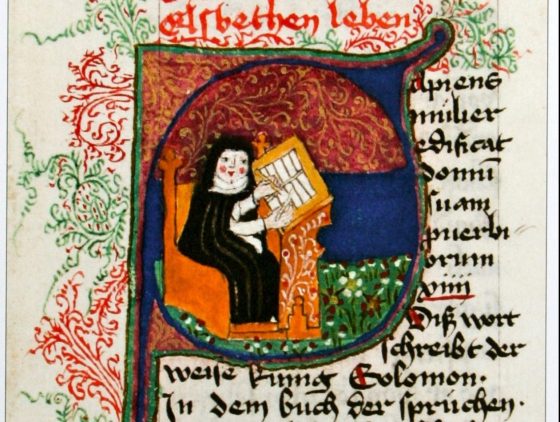 elsbethen leben
Sapiens
mulier
edificat
domū
suam
puerbi
orum
xiiii
Diß wort
schreibt der
weise kung Salomon.
In dem buch der sprüchen.